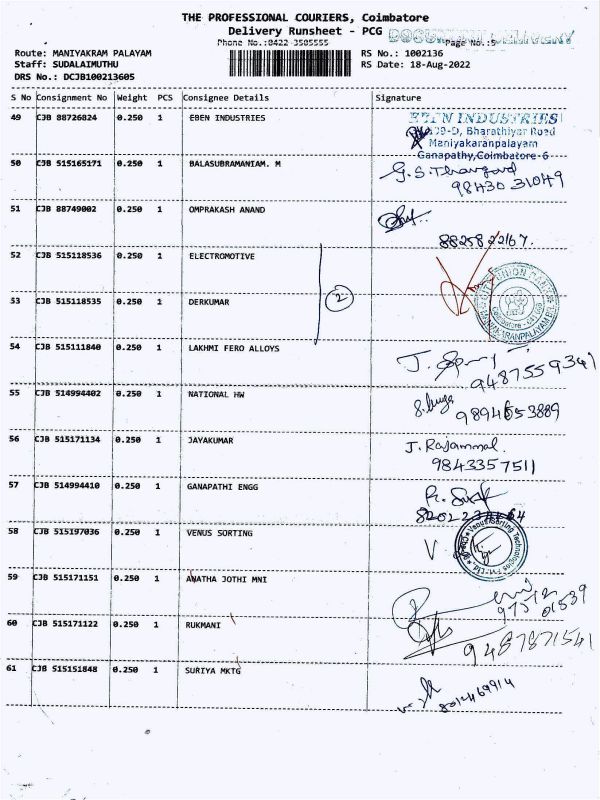 THE PROFESSIONAL COURIERS, Coimbatore
Delivery Runsheet - PCG DOCUMENT DELIVERY
Phone No.:0422-3505555 Page No.:5
Route: MANIYAKRAM PALAYAM RS No.: 1002136
Staff: SUDALAIMUTHU RS Date: 18-Aug-2022
DRS No.: DCJB100213605
S No Consignment No Weight PCS Consignee Details Signature
49 CJB 88726824 0.250 1 EBEN INDUSTRIES EBEN INDUSTRIES
Bharathiyar Road
Maniyakaranpalayam
Ganapathy, Coimbatore-6
50 CJB 515165171 0.250 1 BALASUBRAMANIAM. M
98430 31049
51 CJB 88749002 0.250 1 OMPRAKASH ANAND
8825822167.
52 CJB 515118536 0.250 1 ELECTROMOTIVE
2
53 CJB 515118535 0.250 1 DERKUMAR
CITY UNION BANK
54 CJB 515111840 0.250 1 LAKHMI FERO ALLOYS
9487559341
55 CJB 514994402 0.250 1 NATIONAL HW
9894653889
56 CJB 515171134 0.250 1 JAYAKUMAR J. Rajammal.
9843357511
57 CJB 514994410 0.250 1 GANAPATHI ENGG
58 CJB 515197036 0.250 1 VENUS SORTING
Venus Sorting Technologies Pvt. Ltd.
59 CJB 515171151 0.250 1 ANATHA JOTHI MNI
60 CJB 515171122 0.250 1 RUKMANI
9487871541
61 CJB 515151848 0.250 1 SURIYA MKTG